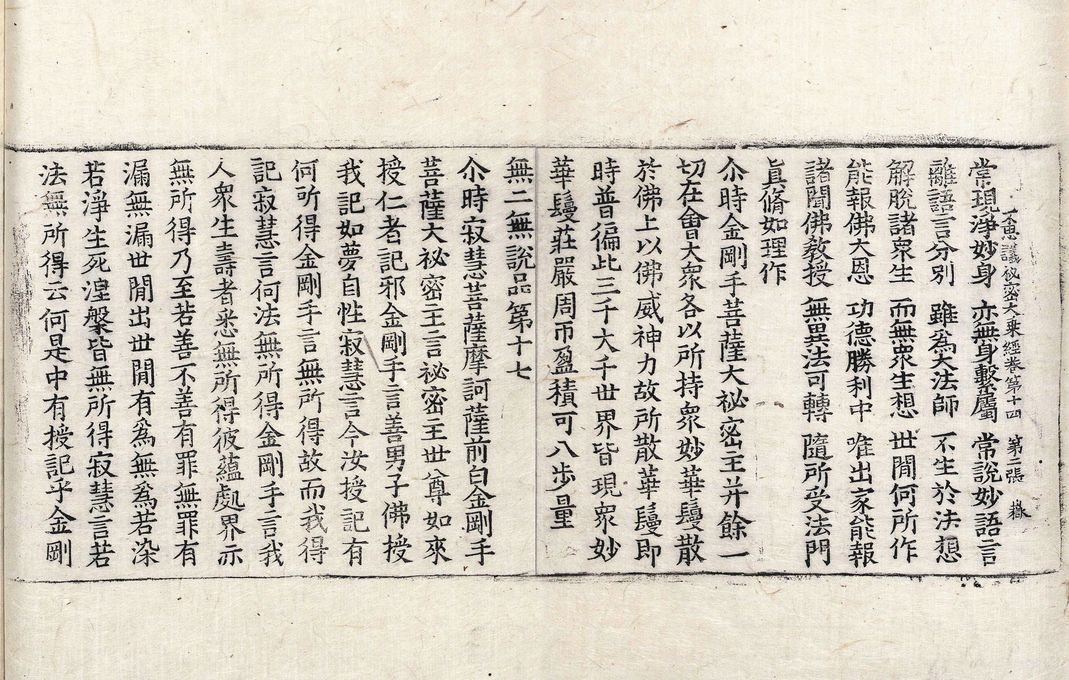 不思議祕密大乘經卷第十四 第二張
常現淨妙身 亦無身繫屬 常說妙語言
離語言分別 雖爲大法師 不生於法想
解脫諸衆生 而無衆生想 世閒何所作
能報佛大恩 功德勝利中 唯出家能報
諸聞佛敎授 無異法可轉 隨所受法門
眞脩如理作
尒時金剛手菩薩大祕密主幷餘一
切在會大衆各以所持衆妙華鬘散
於佛上以佛威神力故所散華鬘卽
時普徧此三千大千世界皆現衆妙
華鬘莊嚴周帀盈積可八步量
無二無說品第十七
尒時寂慧菩薩摩訶薩前白金剛手
菩薩大祕密主言祕密主世尊如來
授仁者記邪金剛手言善男子佛授
我記如夢自性寂慧言今汝授記有
何所得金剛手言無所得故而我得
記寂慧言何法無所得金剛手言我
人衆生壽者悉無所得彼蘊處界亦
無所得乃至若善不善有罪無罪有
漏無漏世閒出世閒有爲無爲若染
若淨生死涅槃皆無所得寂慧言若
法無所得云何是中有授記乎金剛